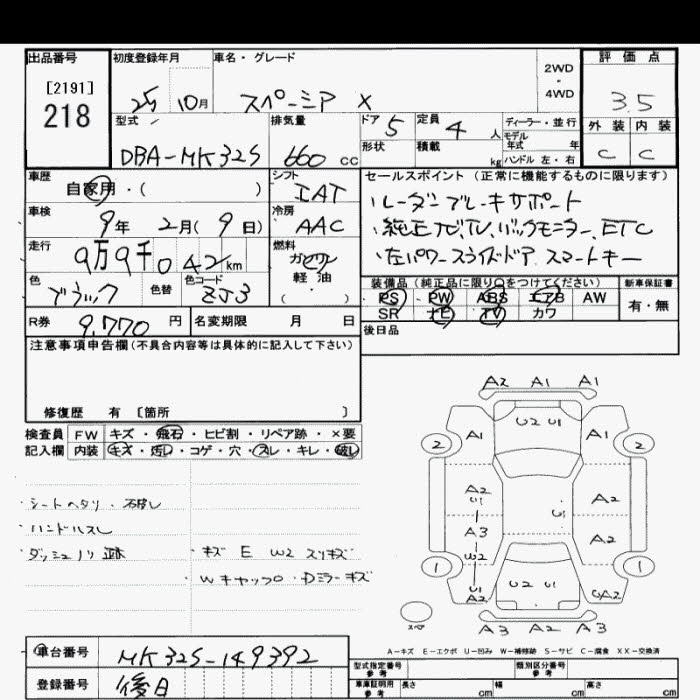 出品番号 初度登録年月 車名・グレード 2WD・4WD 評価点
[2191]
218 25 10月 スペーシア X 3.5
型式 排気量 ドア 定員 ディーラー・並行 外装 内装
DBA-MK32S 660 cc 5 4 人 モデル年式 年 C C
形状 積載 kg ハンドル 左・右
車歴 シフト セールスポイント (正常に機能するものに限ります)
自家用・( ) IAT ・レーダーブレーキサポート
車検 9年 2月(9日) 冷房 AAC ・純正ナビTV、バックモニター、ETC
走行 9万9千042km 燃料 ガソリン ・左パワースライドドア スマートキー
軽油
・( )
色 ブラック 色替 色コード ZJ3 装備品 (純正品に限り○をつけてください) 新車保証書
PS PW ABS エアB AW 有・無
R券 9,770 円 名変期限 月 日 SR ナビ TV カワ
後日品
注意事項申告欄(不具合内容等は具体的に記入して下さい)
修復歴 有 [箇所 ]
A2 A1 A1
検査員 FW キズ・飛石・ヒビ割・リペア跡・×要
記入欄 内装 キズ・汚レ・コゲ・穴・スレ・キレ・破レ
U2 U1
A1 A1
2 2
シートヘタリ・
ハンドルスレ
ダッシュノリ跡
・キズ E W2 スリキズ
・Wキャップ・Dミラーキズ
A2 U1 U1 A2
A3 A2
W2
1 1
U1 A2 U2 U1 UA2
スペア A3 A2 A3
A-キズ E-エクボ U-凹み W-補修跡 S-サビ C-腐食 XX-交換済
車台番号 MK32S-149392
型式指定番号 参考 類別区分番号 参考
登録番号 後日
車庫証明用 参考 長さ cm 幅 cm 高さ cm